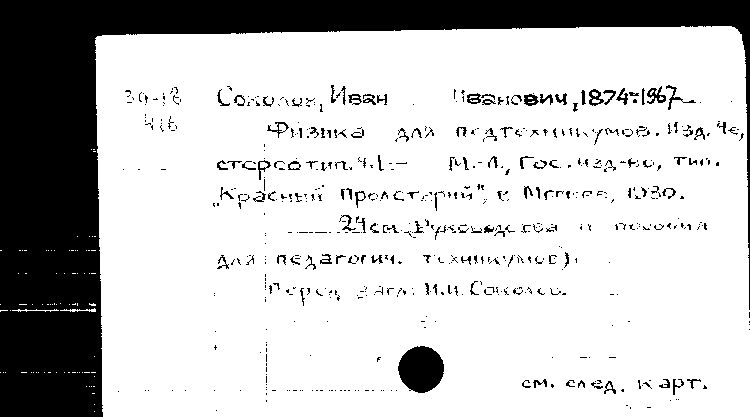 30-18 Соколов, Иван Иванович, 1874-1967
416
Физика для педтехникумов. Изд. 4е,
стереотип. Ч.1.- М.-Л., Гос. изд-во, тип.
"Красный Пролетарий", в Москве, 1930.
24см. (Руководства и пособия
для педагогич. техникумов).
Перед загл: И.И. Соколов.
см. след. карт.